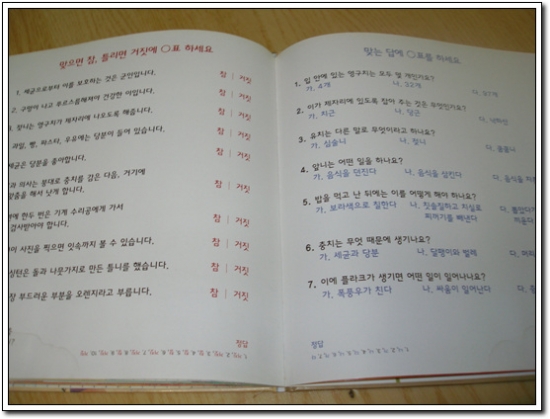 맞으면 참, 틀리면 거짓에 ○표 하세요.
1. 세균으로부터 이를 보호하는 것은 군인입니다. 참 | 거짓
2. 구멍이 나고 부르스름해져야 건강한 이입니다. 참 | 거짓
젖니는 영구치가 제자리에 나오도록 해줍니다. 참 | 거짓
과일, 빵, 파스타, 우유에는 당분이 들어 있습니다. 참 | 거짓
세균은 당분을 좋아합니다. 참 | 거짓
과 의사는 붕대로 충치를 감은 다음, 거기에
맞춤을 해서 낫게 합니다. 참 | 거짓
에 한두 번은 기계 수리공에게 가서
검사받아야 합니다. 참 | 거짓
이 사진을 찍으면 잇속까지 볼 수 있습니다. 참 | 거짓
싱턴은 돌과 나뭇가지로 만든 틀니를 했습니다. 참 | 거짓
장 부드러운 부분을 오렌지라고 부릅니다. 참 | 거짓
정답
맞는 답에 ○표를 하세요.
1. 입 안에 있는 영구치는 모두 몇 개인가요?
가. 4개 나. 32개 다. 97개
2. 이가 제자리에 있도록 잡아 주는 것은 무엇인가요?
가. 치근 나. 당근 다.
3. 유치는 다른 말로 무엇이라고 하나요?
가. 심술니 나. 젖니 다.
4. 앞니는 어떤 일을 하나요?
가. 음식을 던진다 나. 음식을 삼킨다 다. 음식을
5. 밥을 먹고 난 뒤에는 이를 어떻게 해야 하나요?
가. 보라색으로 칠한다 나. 칫솔질하고 치실로 다.
찌꺼기를 빼낸다
6. 충치는 무엇 때문에 생기나요?
가. 세균과 당분 나. 달팽이와 벌레 다.
7. 이에 플라크가 생기면 어떤 일이 일어나나요?
가. 폭풍우가 친다 나. 싸움이 일어난다 다.
정답